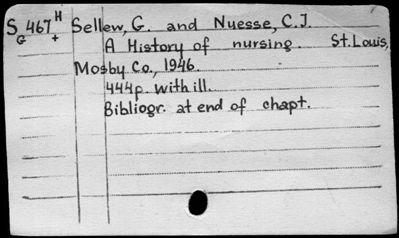 S 467 H Sellew, G. and Nuesse, C.J.
G + A History of nursing. St. Louis,
Mosby Co., 1946.
444p. with ill.
Bibliogr. at end of chapt.